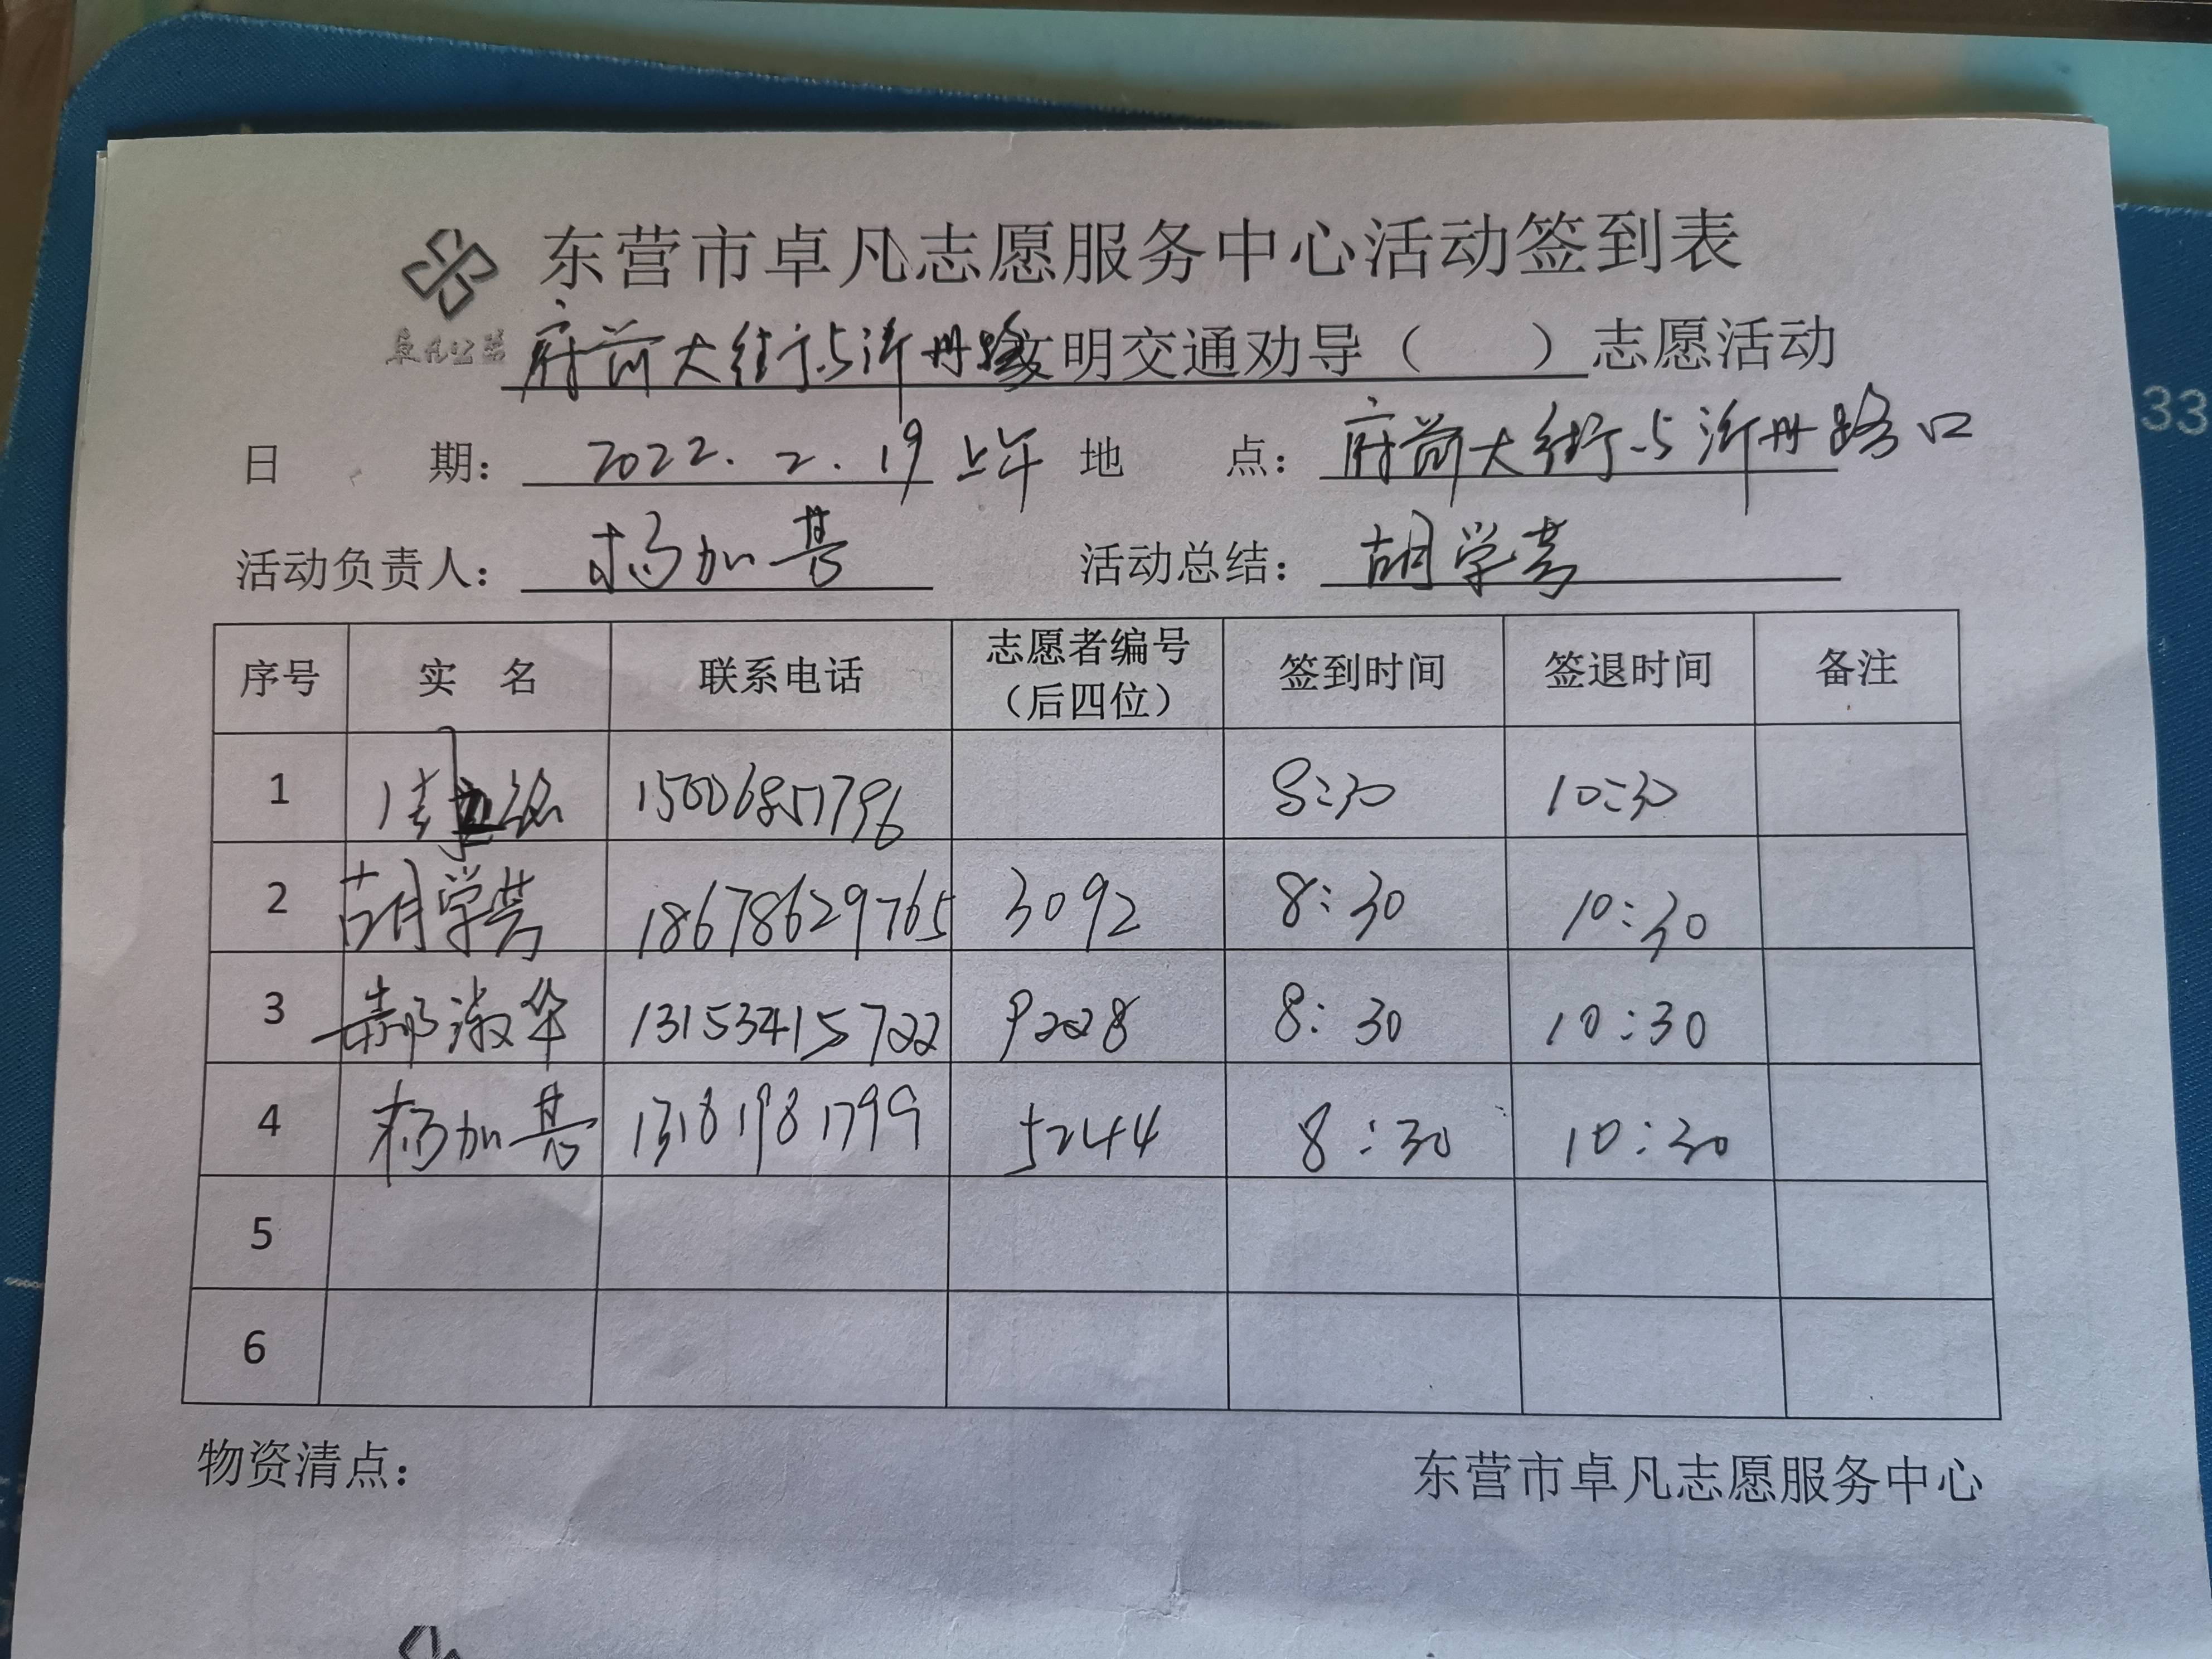 东营市卓凡志愿服务中心活动签到表
卓凡公益
府前大街与沂州路文明交通劝导（ ）志愿活动
33
日 期： 2022.2.19 上午 地 点： 府前大街与沂州路口
活动负责人： 杨加基 活动总结： 胡学芸
序号 实 名 联系电话 志愿者编号（后四位） 签到时间 签退时间 备注
1 15006851796 8:30 10:30
2 胡学芸 18678629765 3092 8:30 10:30
3 郝淑华 13153415722 9228 8:30 10:30
4 杨加基 13181981799 5244 8:30 10:30
5
6
物资清点： 东营市卓凡志愿服务中心